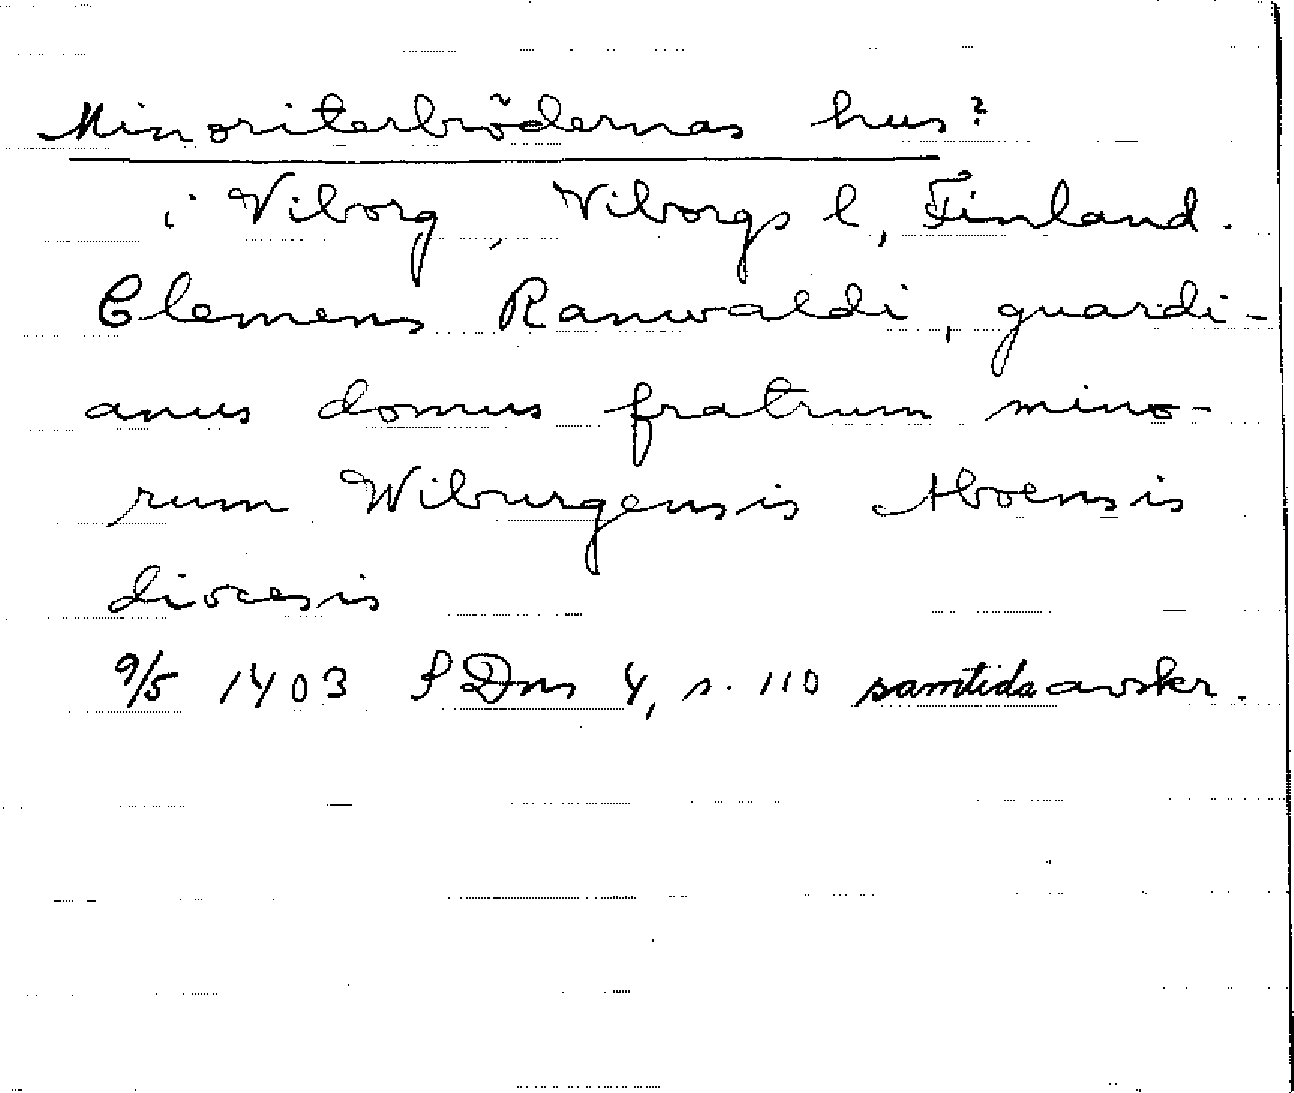 Minoriterbrödernas hus?
i Viborg, Viborgs l, Finland.
Clemens Ranwaldi, guardi-
anus domus fratrum mino-
rum Wiburgensis Aboensis
diocesis
9/5 1403 SDns 4, s. 110 samtida avskr.